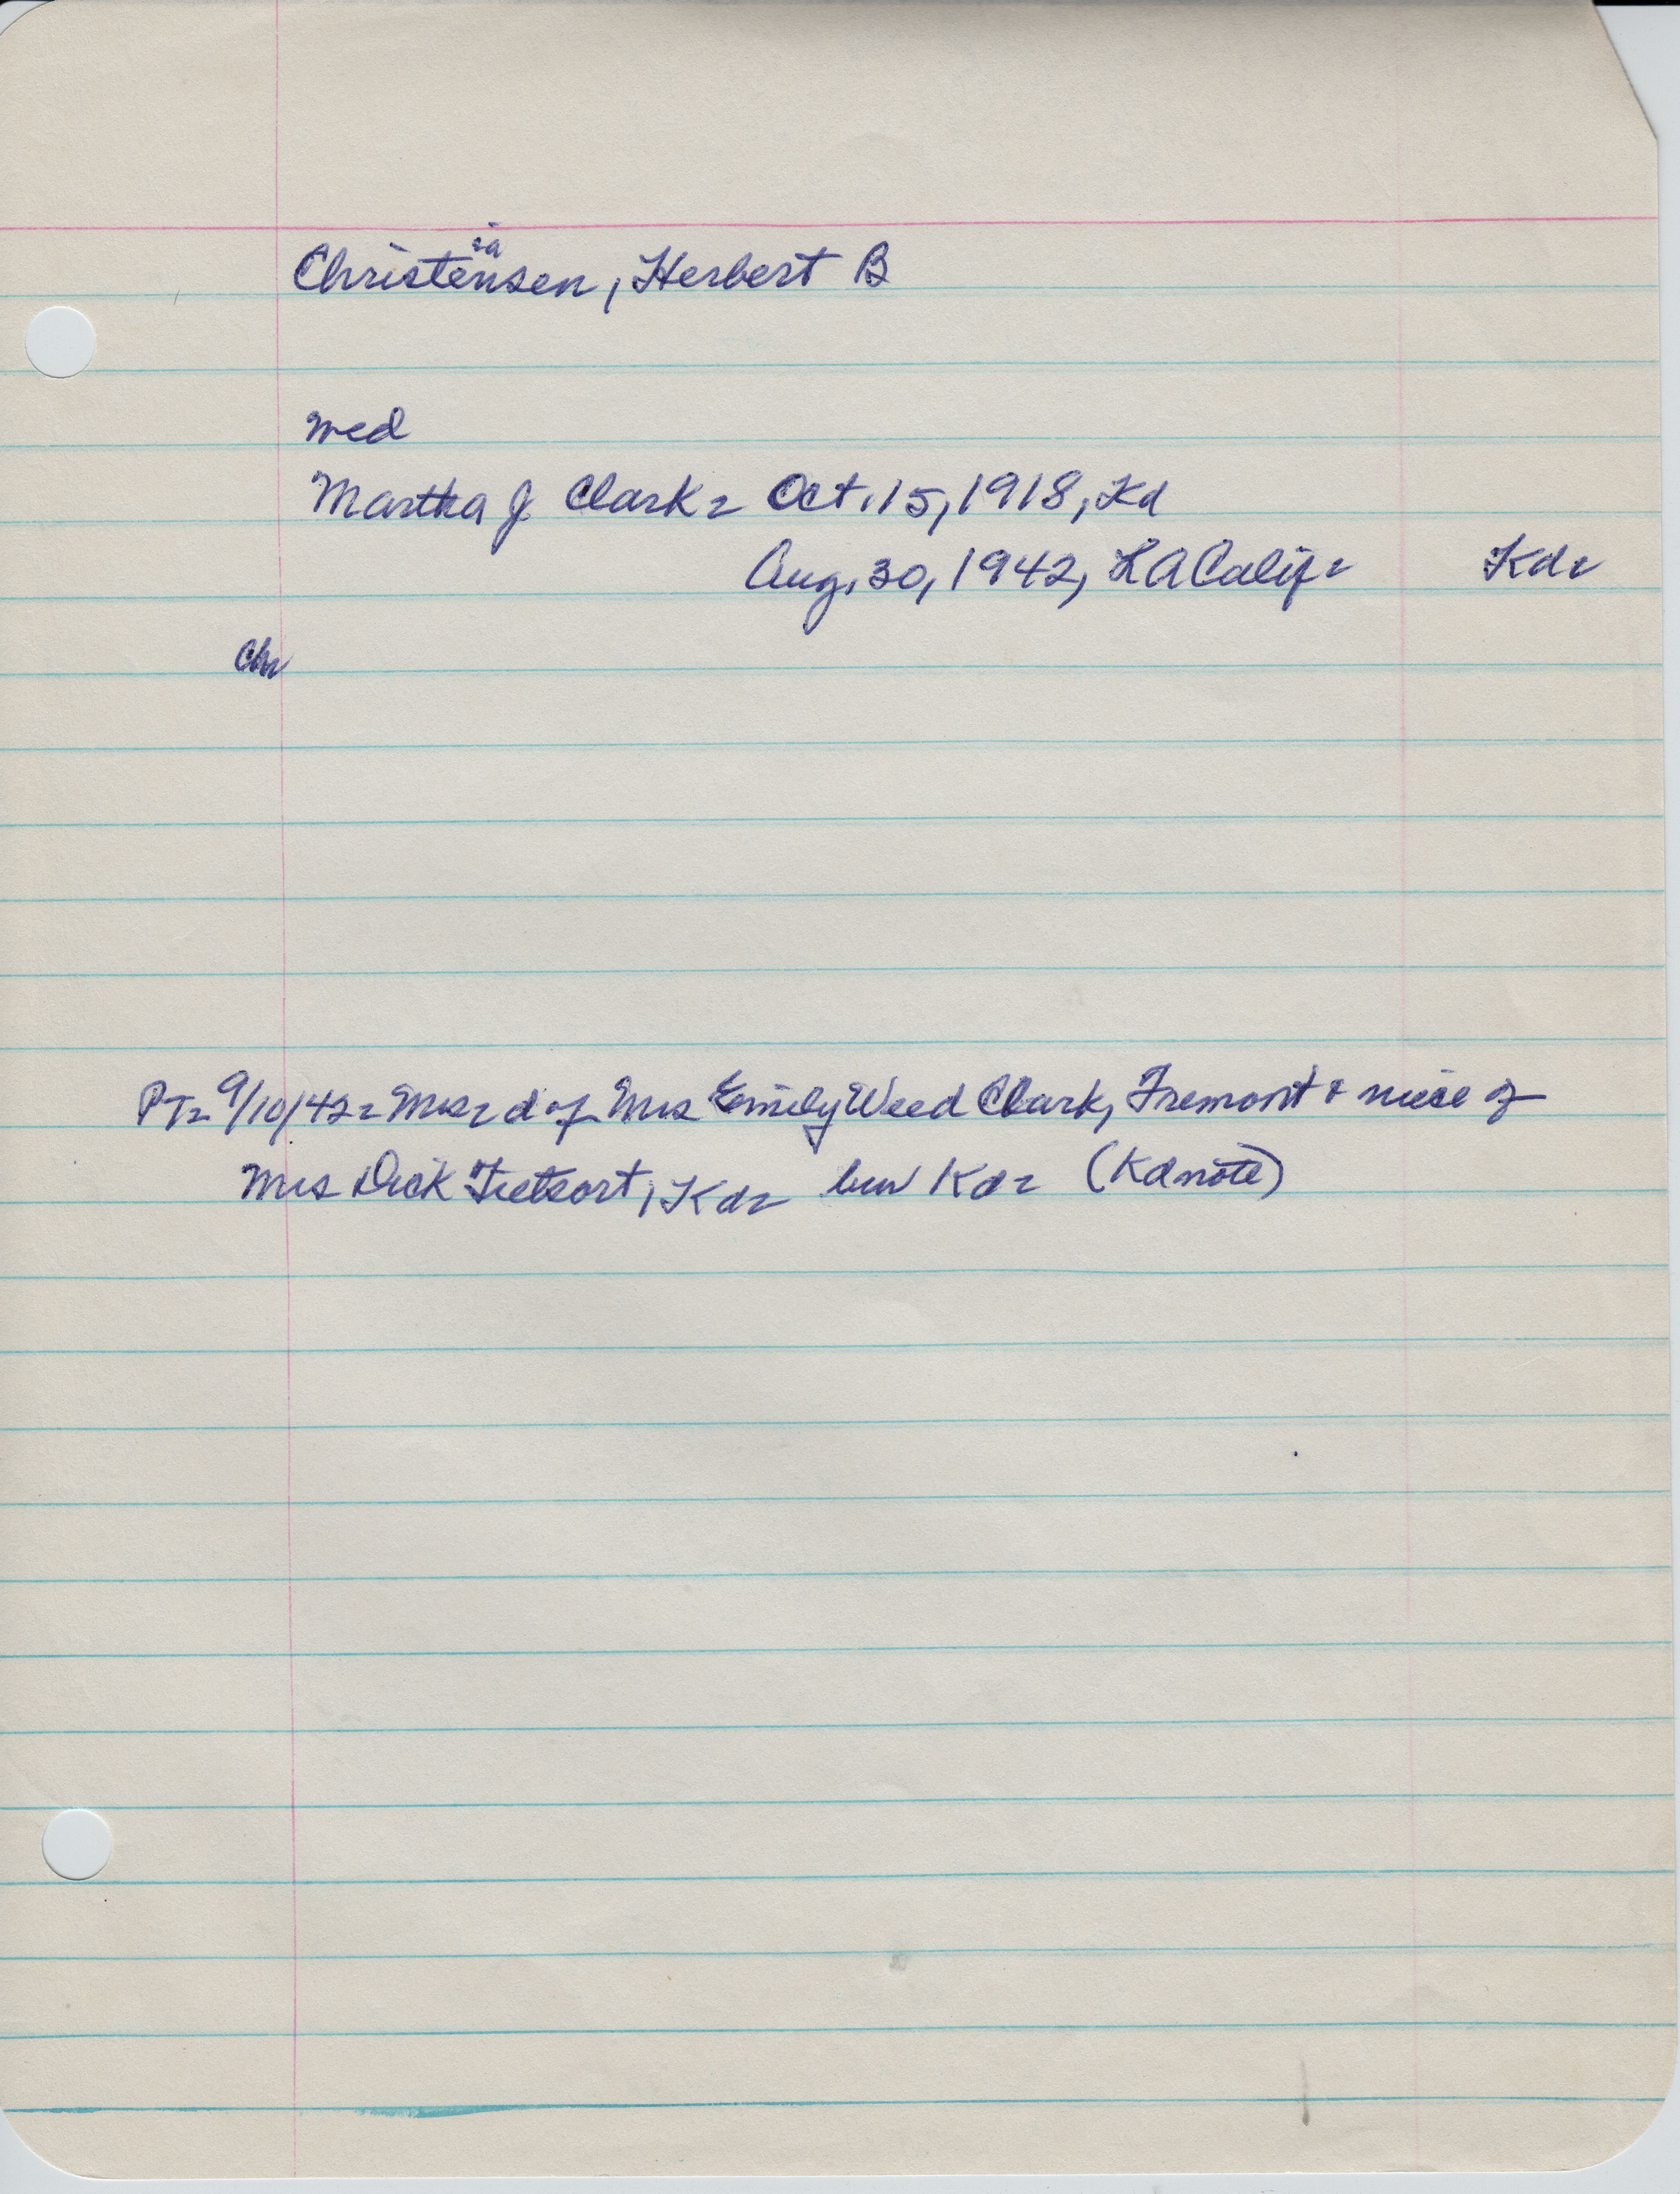 Christensen, Herbert B
ia
wed
Martha J Clark - Oct. 15, 1918, Kd
Aug. 30, 1942, LA Calif - Kd -
Chr
PT - 9/10/42 - Mrs - d of Mrs Emily Weed Clark, Fremont & niece of
Mrs Dick Tietsort, Kd - bur Kd - (Kd note)